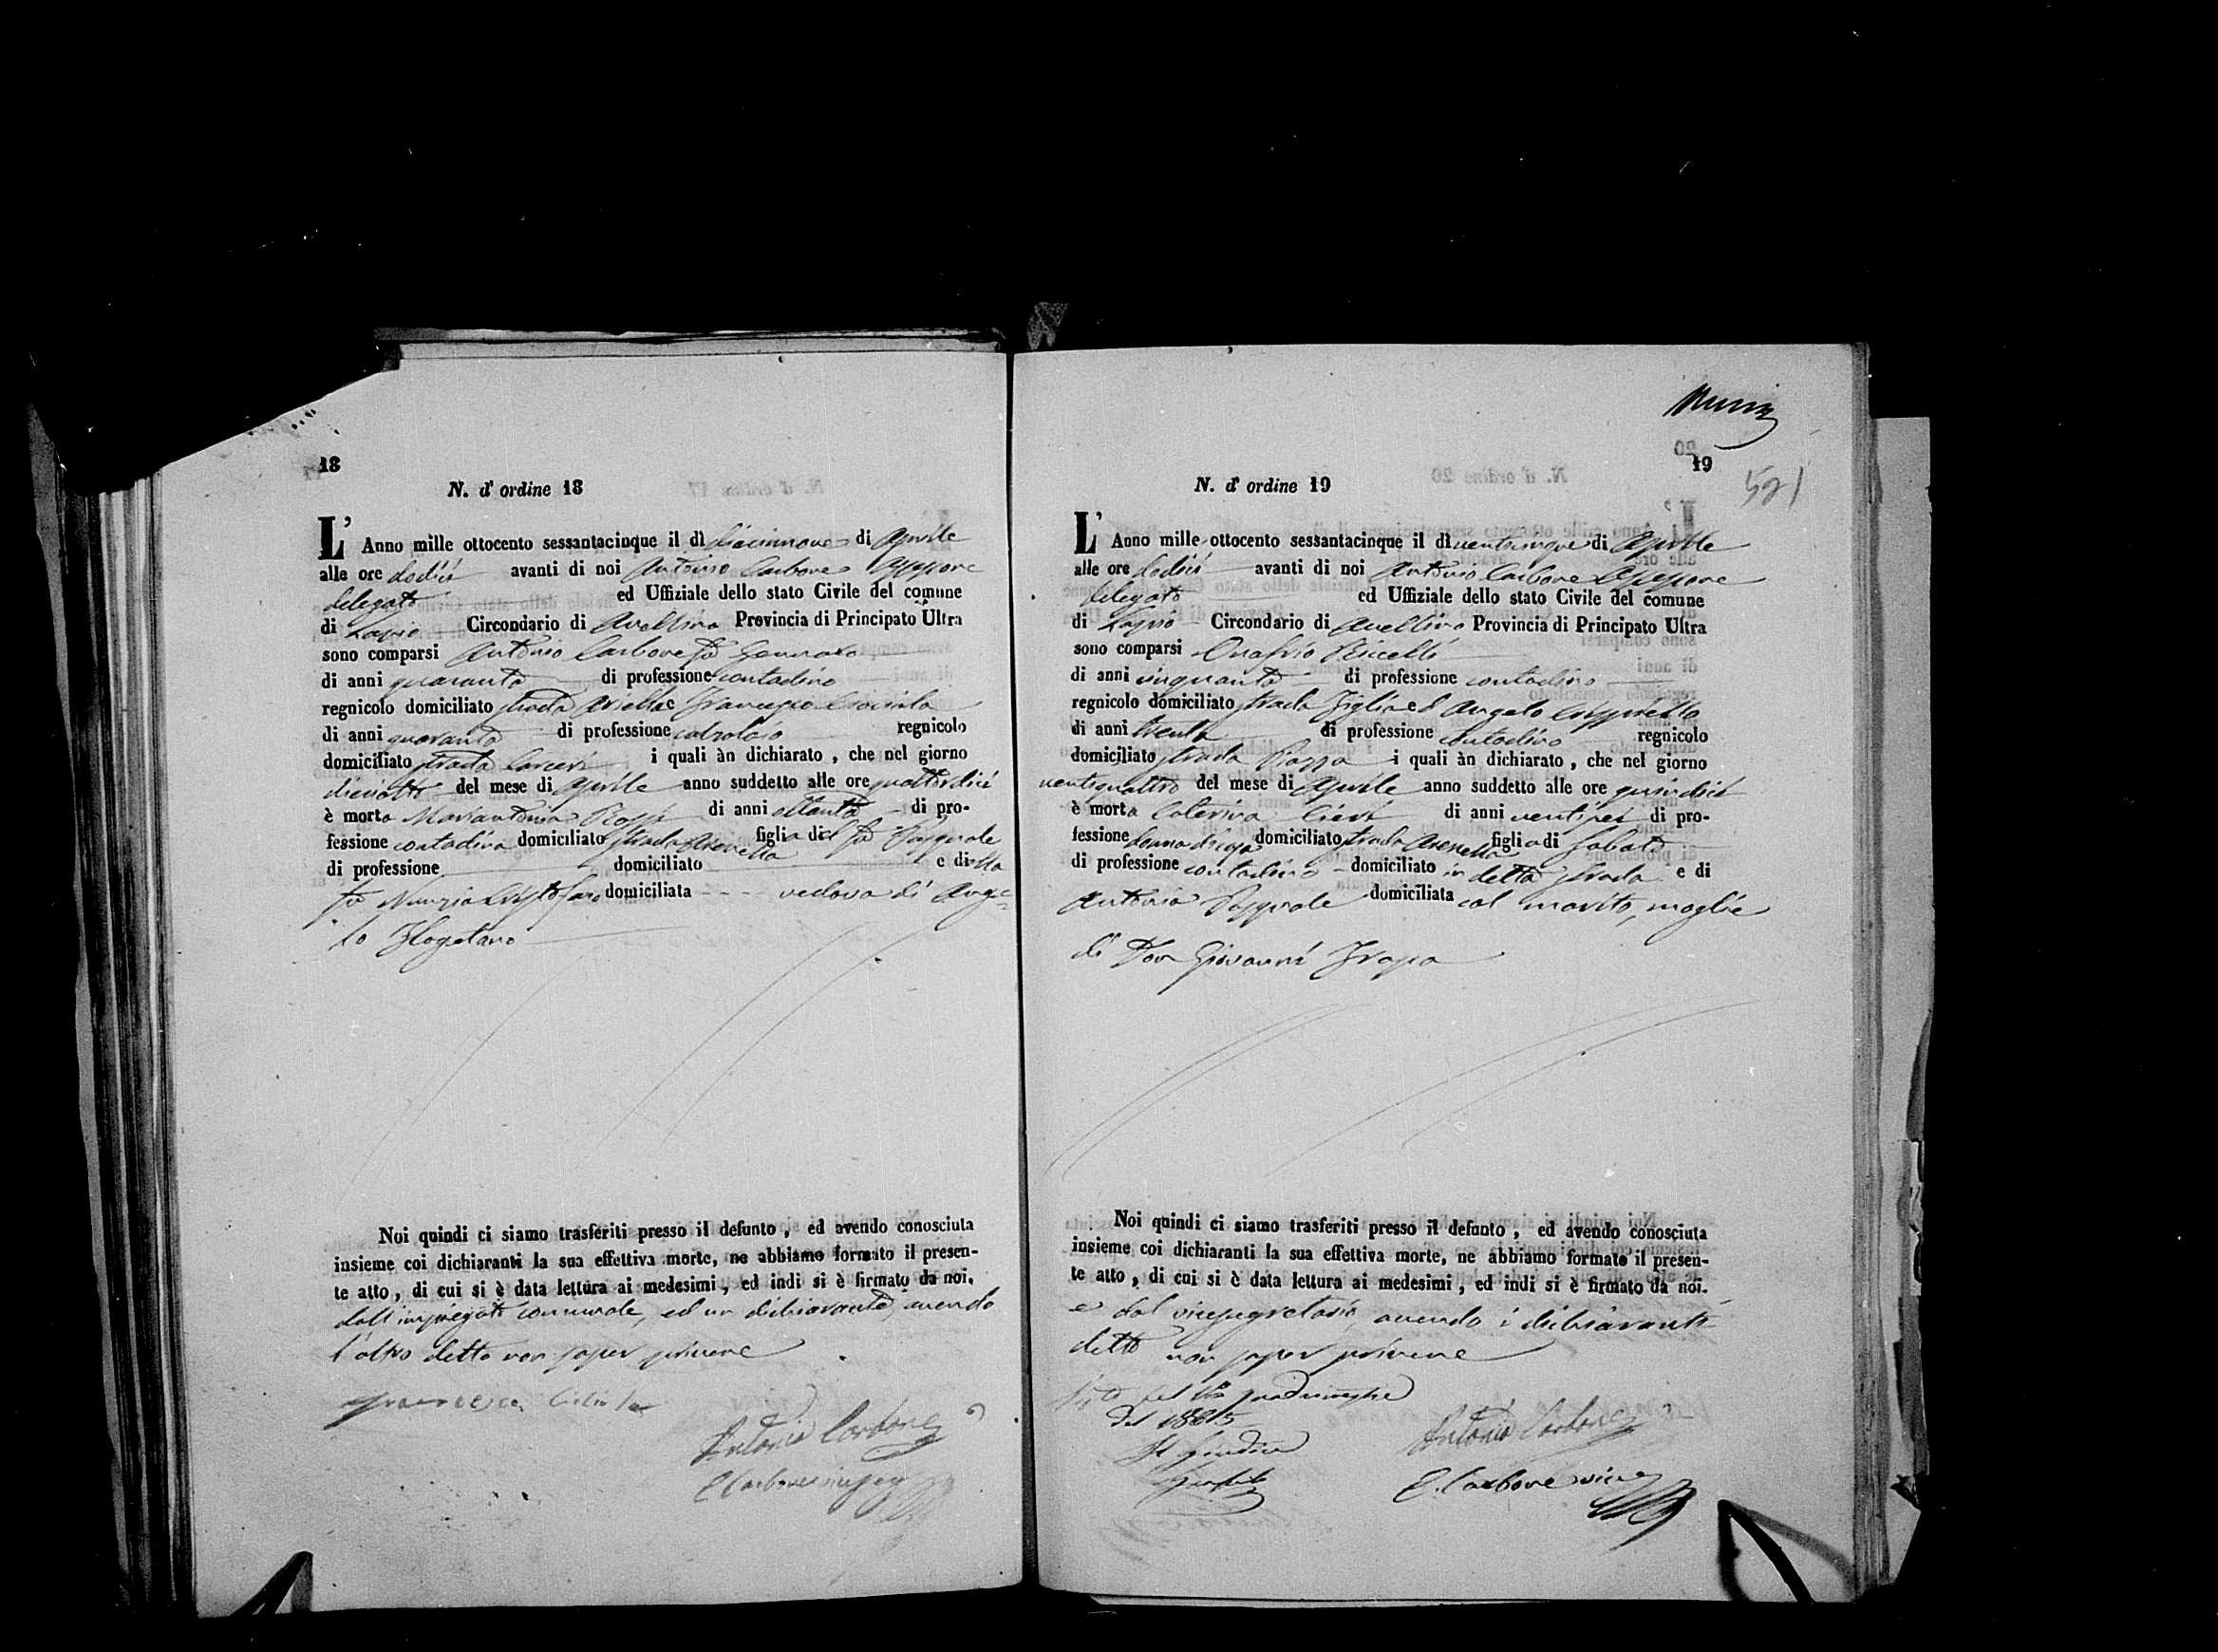 18
N. d' ordine 18
L' Anno mille ottocento sessantacinque il dì diciannove di Aprile
alle ore dodici avanti di noi Antonio Carbone Assessore
delegato ed Uffiziale dello stato Civile del comune
di Lapio Circondario di Avellino Provincia di Principato Ultra
sono comparsi Antonio Carbone fu Gennaro
di anni quaranta di professione contadino
regnicolo domiciliato strada e Francesco
di anni quaranta di professione calzolaio regnicolo
domiciliato strada Carceri i quali àn dichiarato , che nel giorno
diciotto del mese di Aprile anno suddetto alle ore quattordici
è morta Mariantonia Rossi di anni ottanta di pro-
fessione contadina domiciliato strada Arenella figlia del fu Pasquale
di professione domiciliato e della
fu Nunzia Cristofaro domiciliata vedova di Ange-
lo
Noi quindi ci siamo trasferiti presso il defunto , ed avendo conosciuta
insieme coi dichiaranti la sua effettiva morte, ne abbiamo formato il presen-
te atto , di cui si è data lettura ai medesimi , ed indi si è firmato da noi,
dall'impiegato comunale, ed un dichiarante, avendo
l'altro detto non saper scrivere
Francesco
Antonio Carbone
E Carbone viceseg
19
521
N. d' ordine 19
L' Anno mille ottocento sessantacinque il dì venticinque di Aprile
alle ore dodici avanti di noi Antonio Carbone Assessore
delegato ed Uffiziale dello stato Civile del comune
di Lapio Circondario di Avellino Provincia di Principato Ultra
sono comparsi Onofrio
di anni cinquanta di professione contadino
regnicolo domiciliato strada ed Angelo
di anni trenta di professione contadino regnicolo
domiciliato strada Piazza i quali àn dichiarato , che nel giorno
ventiquattro del mese di Aprile anno suddetto alle ore quindici
è morta Caterina di anni ventisei di pro-
fessione donna di casa domiciliato strada Arenella figlia di Sabato
di professione contadino domiciliato in detta strada e di
Antonia Pasquale domiciliata col marito, moglie
di Don Giovanni
Noi quindi ci siamo trasferiti presso il defunto , ed avendo conosciuta
insieme coi dichiaranti la sua effettiva morte, ne abbiamo formato il presen-
te atto , di cui si è data lettura ai medesimi , ed indi si è firmato da noi.
e dal vicesegretario, avendo i dichiaranti
detto non saper scrivere
del 1865
Il Giudice
Antonio Carbone
E. Carbone vice